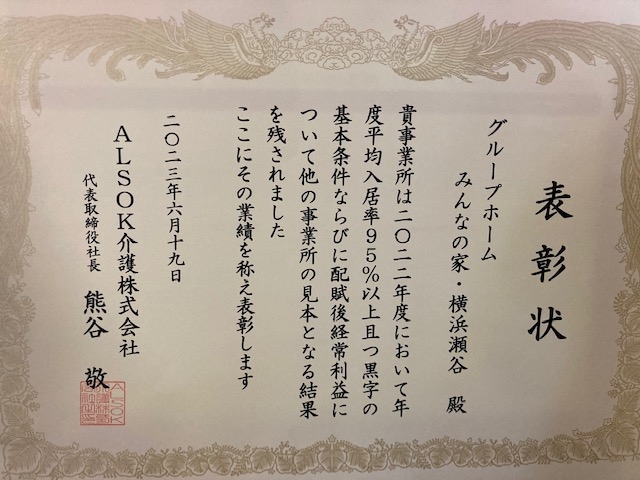 表彰状
グループホーム
みんなの家・横浜瀬谷 殿
貴事業所は二〇二二年度において年
度平均入居率95%以上且つ黒字の
基本条件ならびに配賦後経常利益に
ついて他の事業所の見本となる結果
を残されました
ここにその業績を称え表彰します
二〇二三年六月十九日
ALSOK介護株式会社
代表取締役社長 熊谷 敬